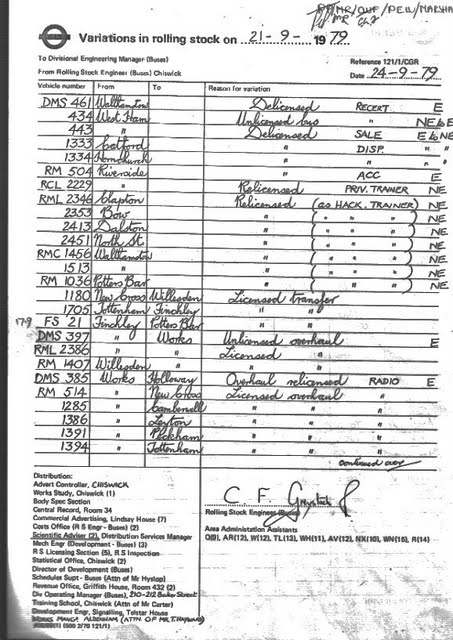 MR/OWP/PEW/MARSHA
MR
Variations in rolling stock on 21-9-1979
To Divisional Engineering Manager (Buses)
Reference 121/1/CGR
From Rolling Stock Engineer (Buses) Chiswick
Date 24-9-79
Vehicle number From To Reason for variation
DMS 461 Walthamstow Delicensed RECERT E
434 West Ham Unlicensed bus " NE & E
443 " Delicensed SALE E & NE
1333 Catford " DISP. " "
1334 Hornchurch " " " "
RM 504 Riverside " ACC E
RCL 2229 " Relicensed PRIV. TRAINER NE
RML 2346 Clapton Relicensed (as HACK. TRAINER) NE
2353 Bow " ( " " " ) NE
2413 Dalston " ( " " " ) NE
2451 North St. " ( " " " ) NE
RMC 1456 Walthamstow " ( " " " ) NE
1513 " " ( " " " ) NE
RM 1036 Potters Bar " ( " " " ) NE
1180 New Cross Willesden Licensed transfer
1705 Tottenham Finchley " "
179 FS 21 Finchley Potters Bar " "
DMS 397 " Works Unlicensed overhaul E
RML 2386 " " Licensed "
RM 1407 Willesden " " "
DMS 385 Works Holloway Overhaul relicensed RADIO E
RM 514 " New Cross Licensed overhaul "
1285 " Camberwell " " "
1386 " Leyton " " "
1391 " Peckham " " "
1394 " Tottenham " " "
continued over
Distribution:
Advert Controller, CHISWICK
Works Study, Chiswick (1)
Body Spec Section
Central Record, Room 34
Commercial Advertising, Lindsay House (7)
Costs Office (R S Engr - Buses) (2)
Scientific Adviser (2), Distribution Services Manager
Mech Engr (Development - Buses) (3)
R S Licensing Section (5), R S Inspection
Statistical Office, Chiswick (2)
Director of Development (Buses)
Schedules Supt - Buses (Attn of Mr Hyslop)
Revenue Office, Griffith House, Room 432 (2)
Div Operating Manager (Buses), 210-212 Baker Street
Training School, Chiswick (Attn of Mr Carter)
Development Engr, Signalling, Telstar House
WORKS MANGR. ALDENHAM (ATTN OF MR. T. HAYWARD)
(500 2/79 121/1)
C. F.
Rolling Stock Engineer (Buses)
Area Administation Assistants
Q(8), AR(12), W(12), TL(13), WH(11), AV(12), NX(10), WN(15), R(14)